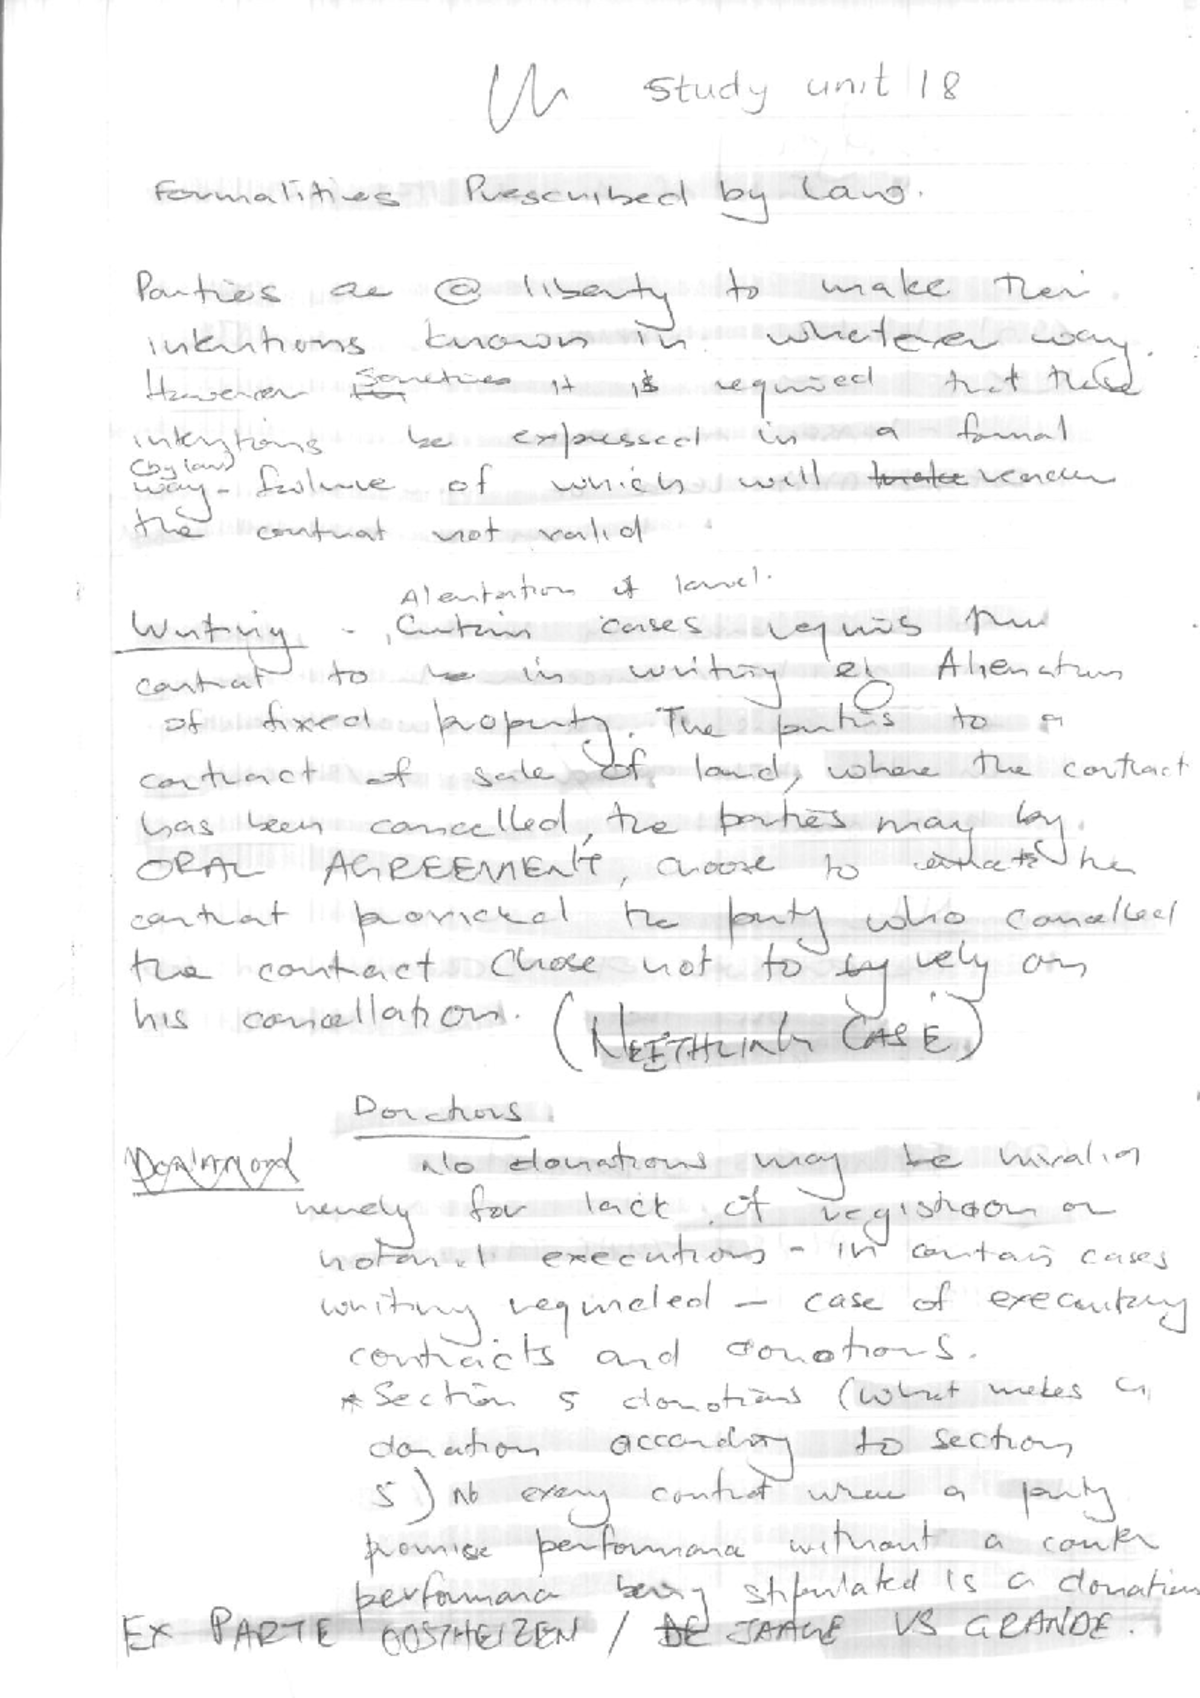 Study unit 18
Formalities Prescribed by Law.
Parties are @ liberty to make their
intentions known in whatever way.
However Sometimes it is required that these
intentions be expressed in a formal
(by law)
way - failure of which will render
the contract not valid
Alienation of land.
Writing - Certain cases requires the
contract to be in writing eg Alienation
of fixed property. The parties to a
contract of sale of land, where the contract
has been cancelled, the parties may by
ORAL AGREEMENT, choose to the
contract provided the party who cancelled
the contract chose not to rely on
his cancellation. (NEETHLING CASE)
Donations
No donations may be invalid
merely for lack of registration or
notarial executions - in certain cases
writing required - case of executory
contracts and donations.
* Section 5 donations (what makes a
donation according to section
5) No every contract where a party
promise performance without a counter
performance being stipulated is a donation
EX PARTE OOSTHEIZEN / DE JAAGE VS GRANDE.